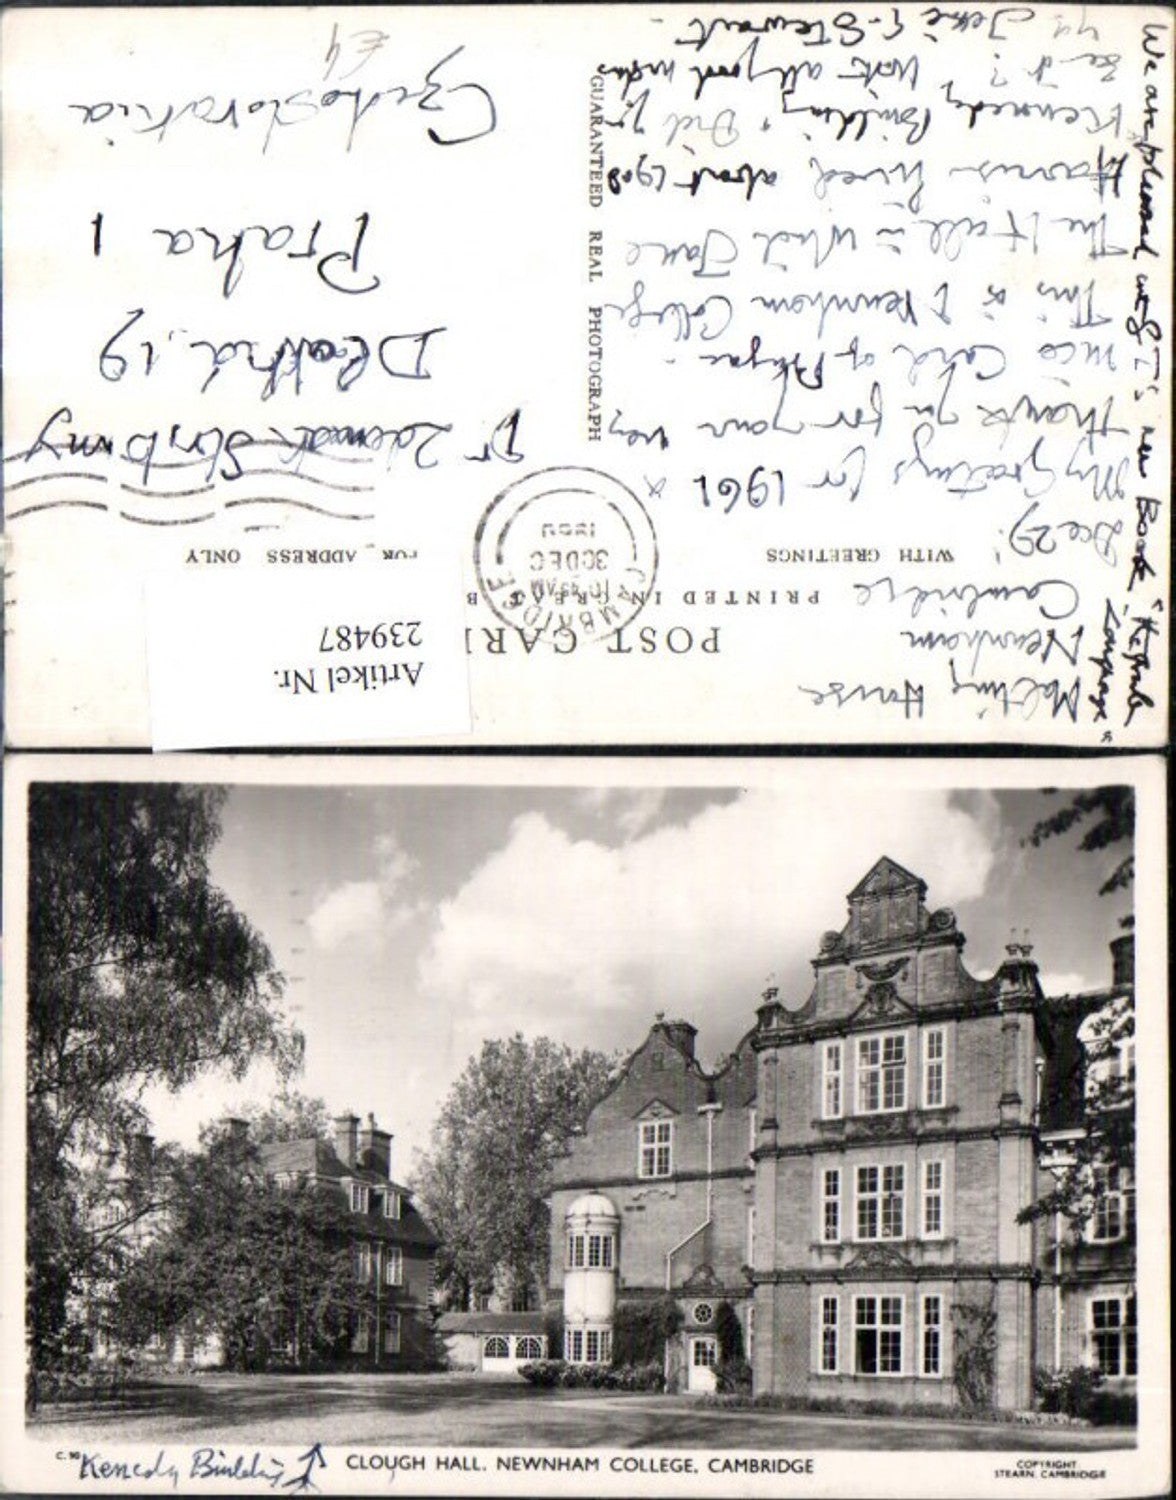 Malting House
Newnham
Cambridge
Dec 29.
My Greetings for 1961 &
thank you for your very
nice Card of Prague.
This is Newnham College
The Hall in which Jane
Harrison lived about 1908
Kennedy Building. Did you
see it? With all good wishes
ys Jessie G. Stewart.
We are pleased with T's new Book "
POST CARD
PRINTED IN GREAT B
WITH GREETINGS
FOR ADDRESS ONLY
CAMBRIDGE
10.45AM
30 DEC
GUARANTEED REAL PHOTOGRAPH
Artikel Nr.
239487
Dr Zdeněk Stříbrný
Dlouhá 19
Praha 1
Czechoslovakia
£4
C.90
Kenedy Building
CLOUGH HALL. NEWNHAM COLLEGE, CAMBRIDGE
COPYRIGHT
STEARN. CAMBRIDGE